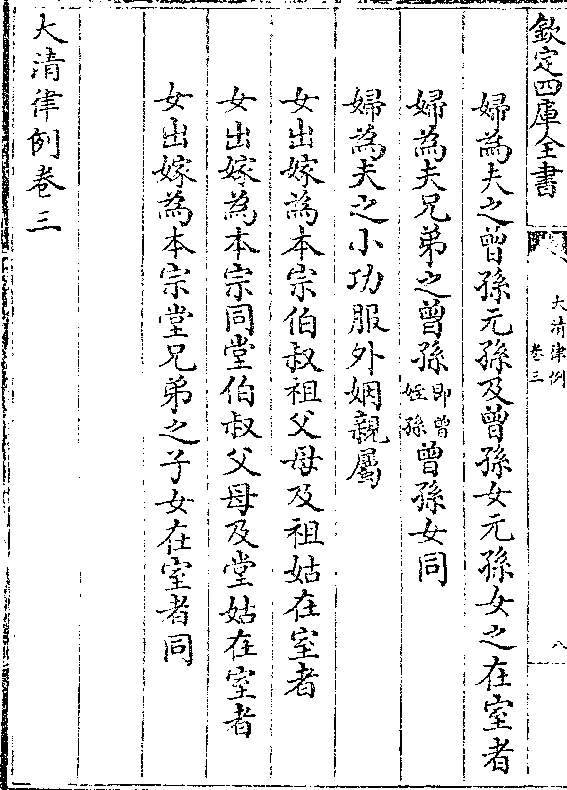 欽定四庫全書
大清律例
卷三
八
婦為夫之曾孫元孫及曾孫女元孫女之在室者
婦為夫兄弟之曾孫即曾姪孫曾孫女同
婦為夫之小功服外姻親屬
女出嫁為本宗伯叔祖父母及祖姑在室者
女出嫁為本宗同堂伯叔父母及堂姑在室者
女出嫁為本宗堂兄弟之子女在室者同
大清律例卷三